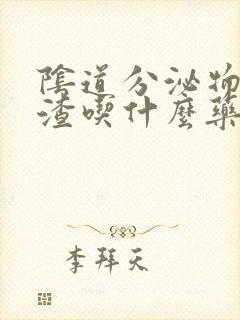 陰道分泌物
渣喫什麼藥
李拜天